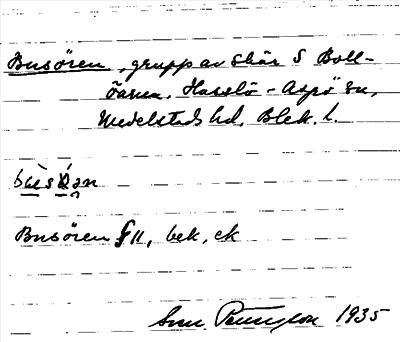 Busören, grupp av skär S Boll-
öarna. Hasslö - Aspö sn,
Medelstads hd. Blek. l.
Busören §11, bek, ek
Sven Benson 1935